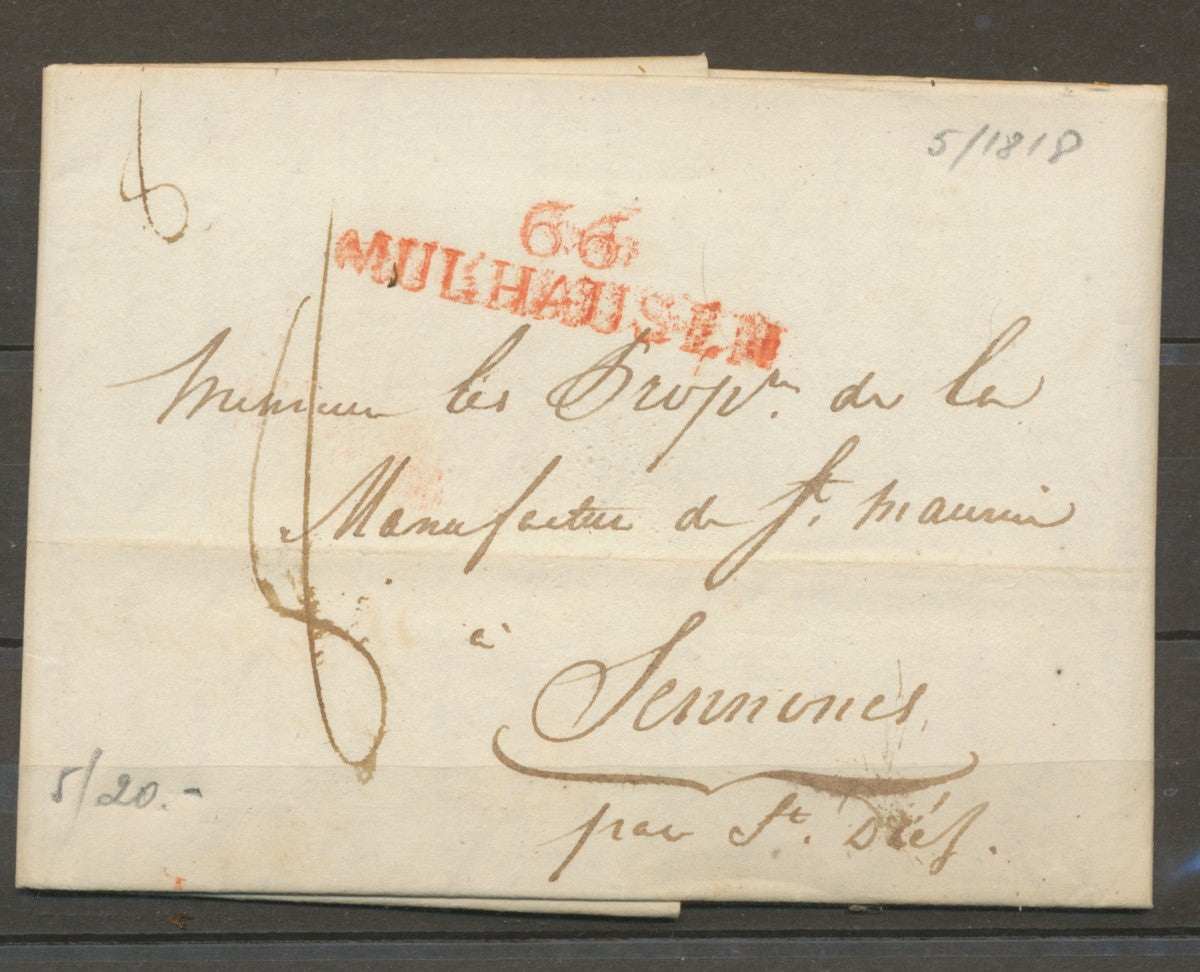 5/1818
6
66
MULHAUSEN
Messieurs les Prop.rs de la
Manufacture de St. Maurice
à
Sennones
par St. Diéz.
5/20.-